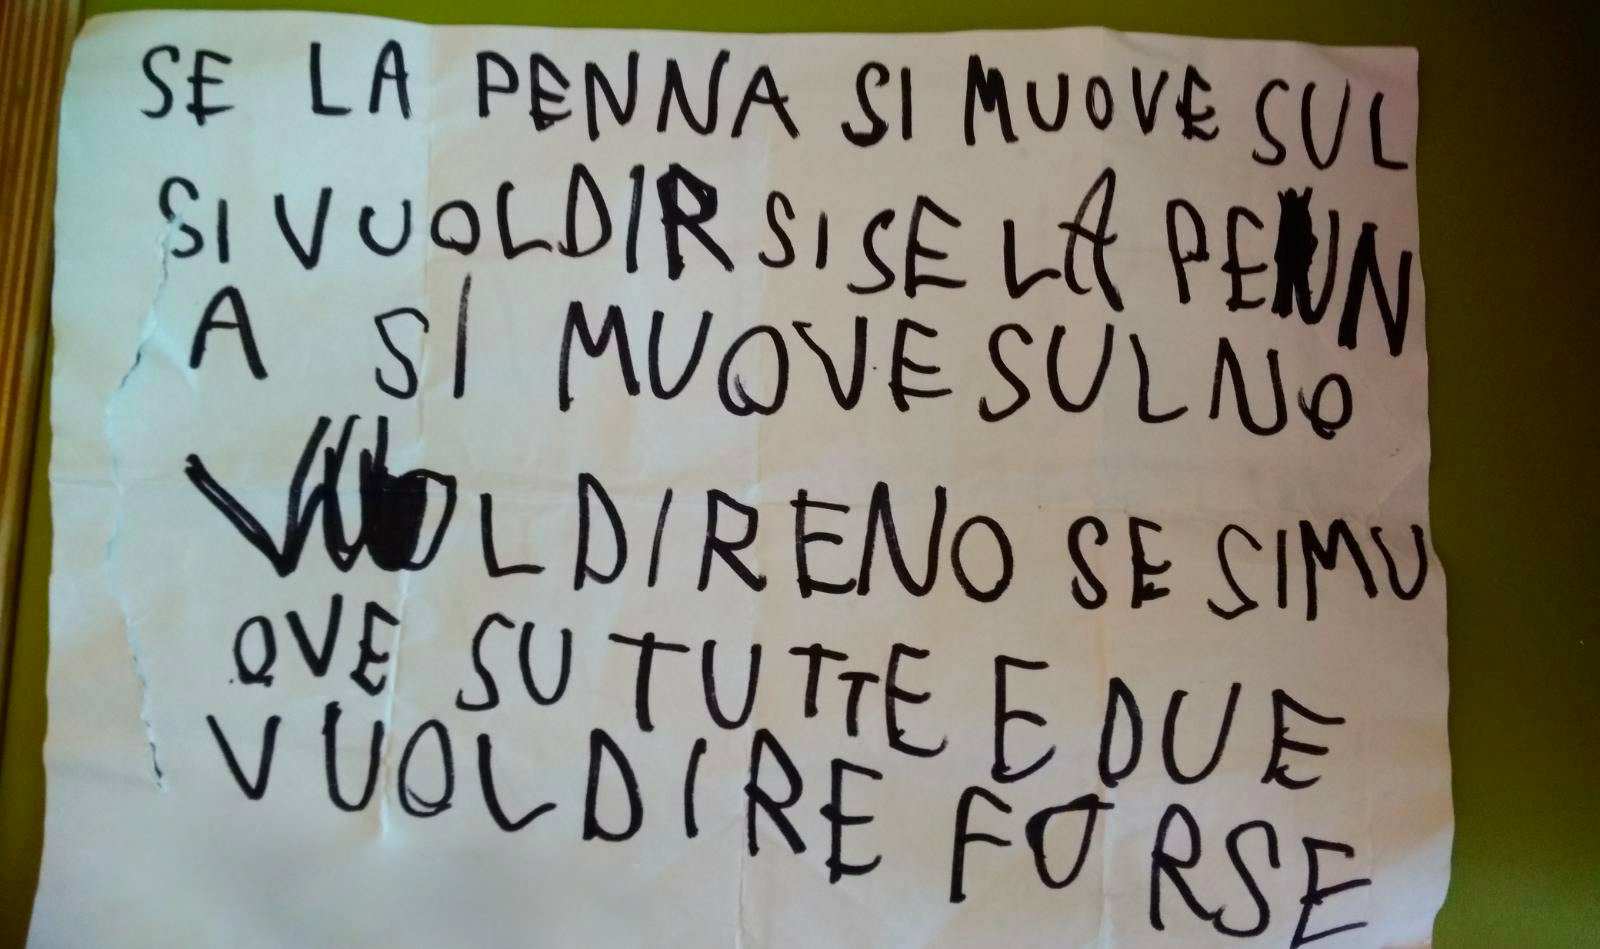 SE LA PENNA SI MUOVE SUL
SI VUOL DIR SI SE LA PENN
A SI MUOVE SUL NO
VUOL DIRE NO SE SI MU
OVE SU TUTTE E DUE
VUOL DIRE FORSE